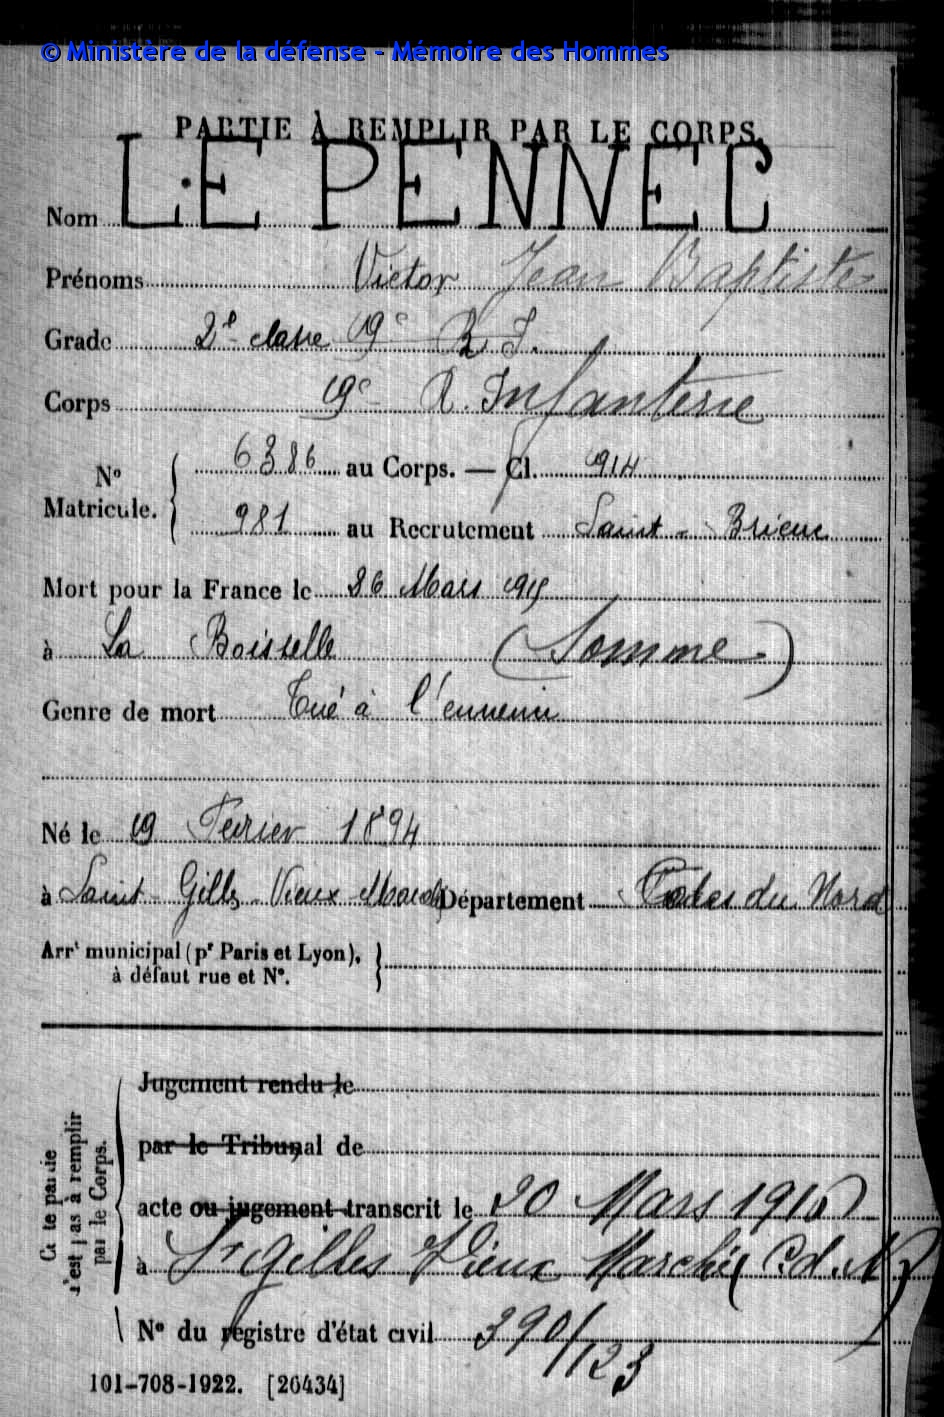 © Ministère de la défense - Mémoire des Hommes
PARTIE À REMPLIR PAR LE CORPS.
Nom LE PENNEC
Prénoms Victor Jean Baptiste
Grade 2e classe 19e R. I.
Corps 19e R. Infanterie
No Matricule. 6386 au Corps. — Cl. 1914
981 au Recrutement Saint-Brieuc
Mort pour la France le 26 Mars 1915
à La Boisselle (Somme)
Genre de mort Tué à l'ennemi
Né le 19 Février 1894
à Saint-Gilles-Vieux-Marché Département Côtes du Nord
Arrt municipal (pr Paris et Lyon),
à défaut rue et No.
Jugement rendu le
par le Tribunal de
acte ou jugement transcrit le 20 Mars 1916
à St Gilles Vieux Marché (C. d. N)
No du registre d'état civil 390/123
Cette partie
n'est pas à remplir
par le Corps.
101-708-1922. [26434]